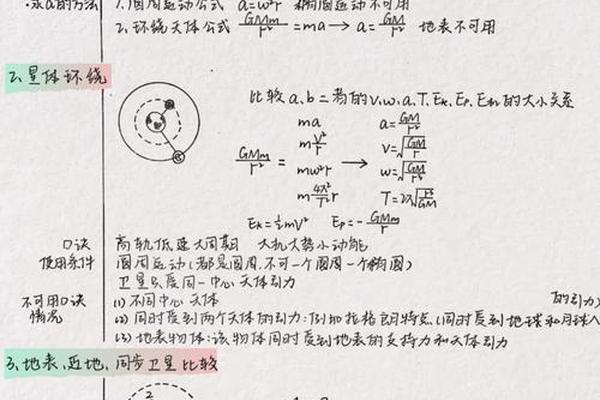 ·求a的方法 1.圆周运动公式 a=w²r 椭圆运动不可用
2.环绕天体公式 GMm/r² =ma→ a=GM/r² 地表不可用
2、星体环绕
比较a、b二者的v、w、a、T、Ek、Ep、E机的大小关系
GMm/r² = ma m v²/r mw²r m 4π²/T² r → a=GM/r² v=√GM/r w=√GM/r³ T=2π√r³/GM
a
b
Ek=½mv² Ep=-GMm/r
口诀 高轨低速大周期 大机大势小动能
使用条件 圆周运动(都是圆周,不可一个圆周一个椭圆)
卫星只受同一中心天体引力
不可用口诀情况 (1)不同中心天体 的引力)
(2)同时受到两个天体的引力:例如拉格朗特点(同时受到地球和月球人
(3)地表物体:该物体同时受到地表的支持力和天体引力
3、地表、近地、同步卫星比较
2